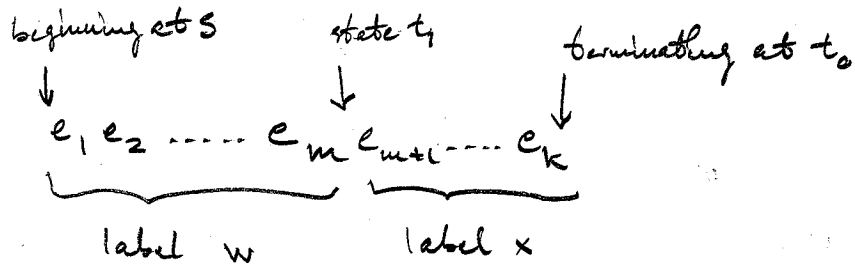 beginning at S state t₁ terminating at t₀
e₁ e₂ ..... e_m e_{m+1} .... e_k
label w label x